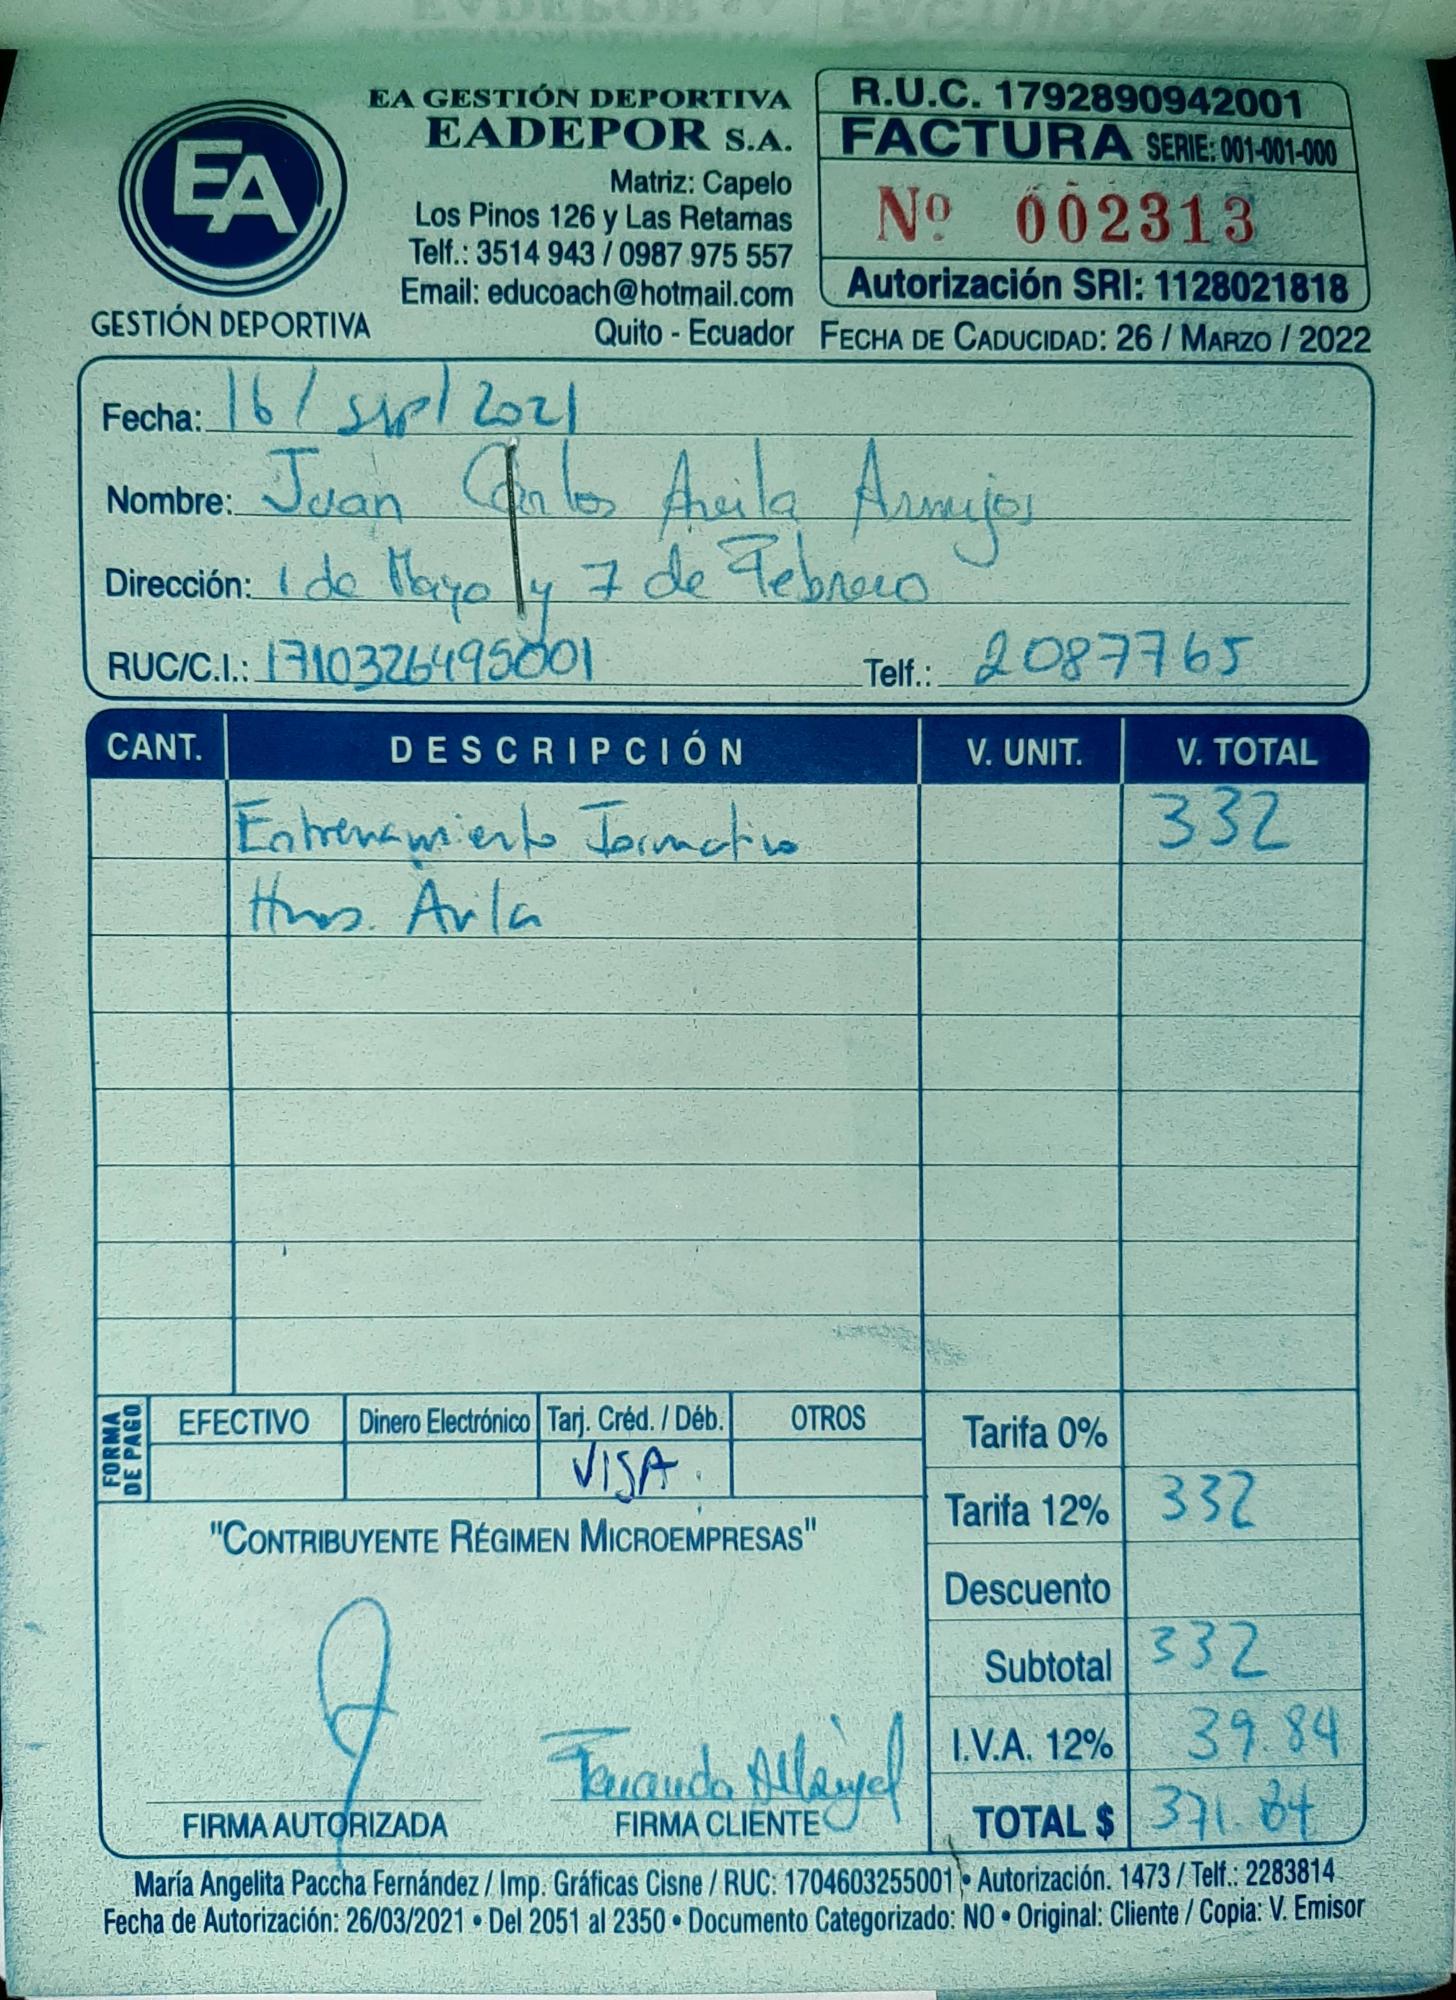 EA GESTIÓN DEPORTIVA
EADEPOR S.A.
Matriz: Capelo
Los Pinos 126 y Las Retamas
Telf.: 3514 943 / 0987 975 557
Email: educoach@hotmail.com
Quito - Ecuador
EA
GESTIÓN DEPORTIVA
R.U.C. 1792890942001
FACTURA SERIE: 001-001-000
Nº 002313
Autorización SRI: 1128021818
FECHA DE CADUCIDAD: 26 / MARZO / 2022
Fecha: 16/sep/2021
Nombre: Juan Carlos Avila Armijos
Dirección: 1 de Mayo y 7 de Febrero
RUC/C.I.: 1710326495001 Telf.: 2087765
CANT. DESCRIPCIÓN V. UNIT. V. TOTAL
Entrenamiento Formativo 332
Hnos. Avila
FORMA DE PAGO
EFECTIVO Dinero Electrónico Tarj. Créd. / Déb. OTROS
VISA.
Tarifa 0%
Tarifa 12% 332
Descuento
Subtotal 332
I.V.A. 12% 39.84
TOTAL $ 371.84
"CONTRIBUYENTE RÉGIMEN MICROEMPRESAS"
Fernanda
FIRMA AUTORIZADA FIRMA CLIENTE
María Angelita Paccha Fernández / Imp. Gráficas Cisne / RUC: 1704603255001 • Autorización. 1473 / Telf.: 2283814
Fecha de Autorización: 26/03/2021 • Del 2051 al 2350 • Documento Categorizado: NO • Original: Cliente / Copia: V. Emisor